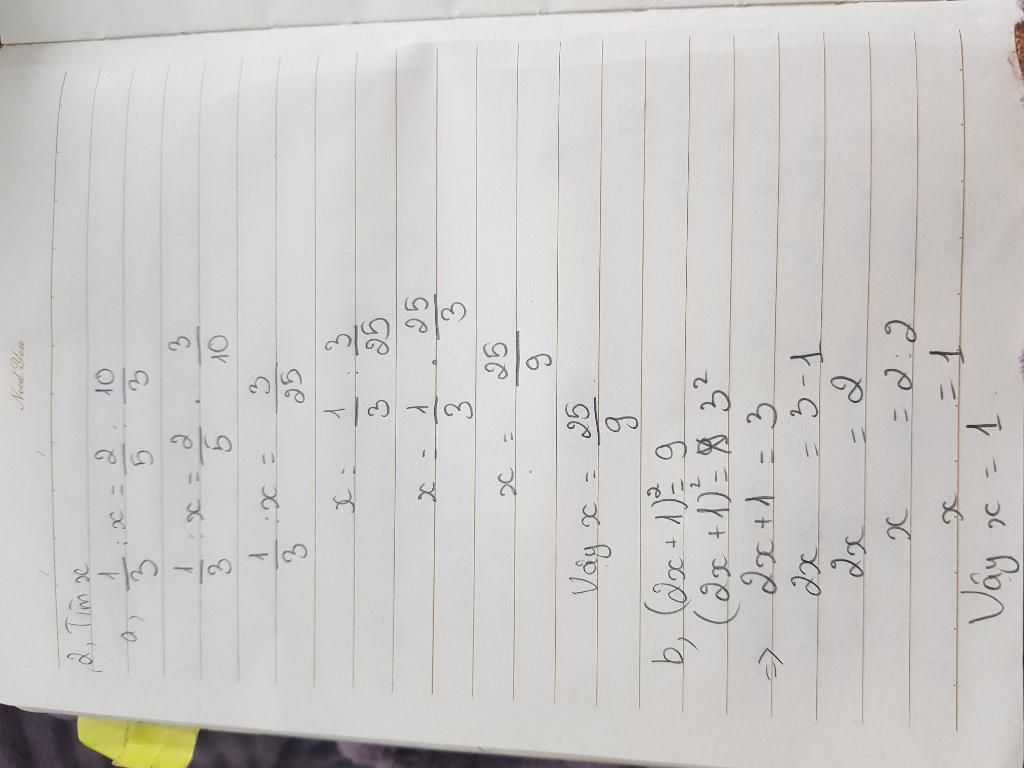 Need You
2, Tìm x
a, 1/3 : x = 2/5 : 10/3
1/3 : x = 2/5 . 3/10
1/3 : x = 3/25
x = 1/3 : 3/25
x = 1/3 . 25/3
x = 25/9
Vậy x = 25/9
b, (2x + 1)² = 9
(2x + 1)² = 3²
=> 2x + 1 = 3
2x = 3 - 1
2x = 2
x = 2 : 2
x = 1
Vậy x = 1